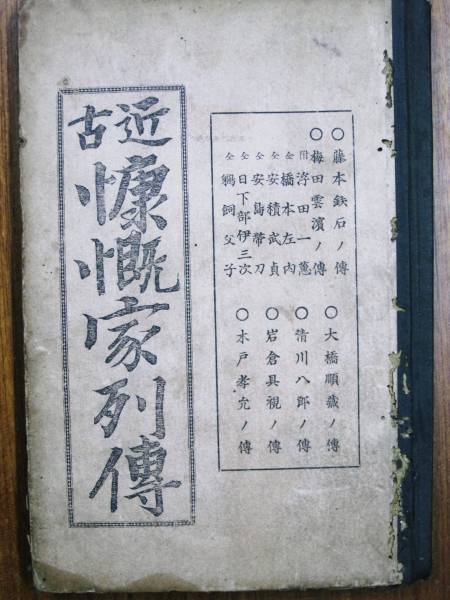 ○藤本鉄石ノ傳
○梅田雲濱ノ傳
附浮田一蕙
仝橋本左内
仝安積武貞
仝安島帶刀
仝日下部伊三次
仝鵜飼父子
○大橋順藏ノ傳
○清川八郎ノ傳
○岩倉具視ノ傳
○木戸孝允ノ傳
近古慷慨家列傳